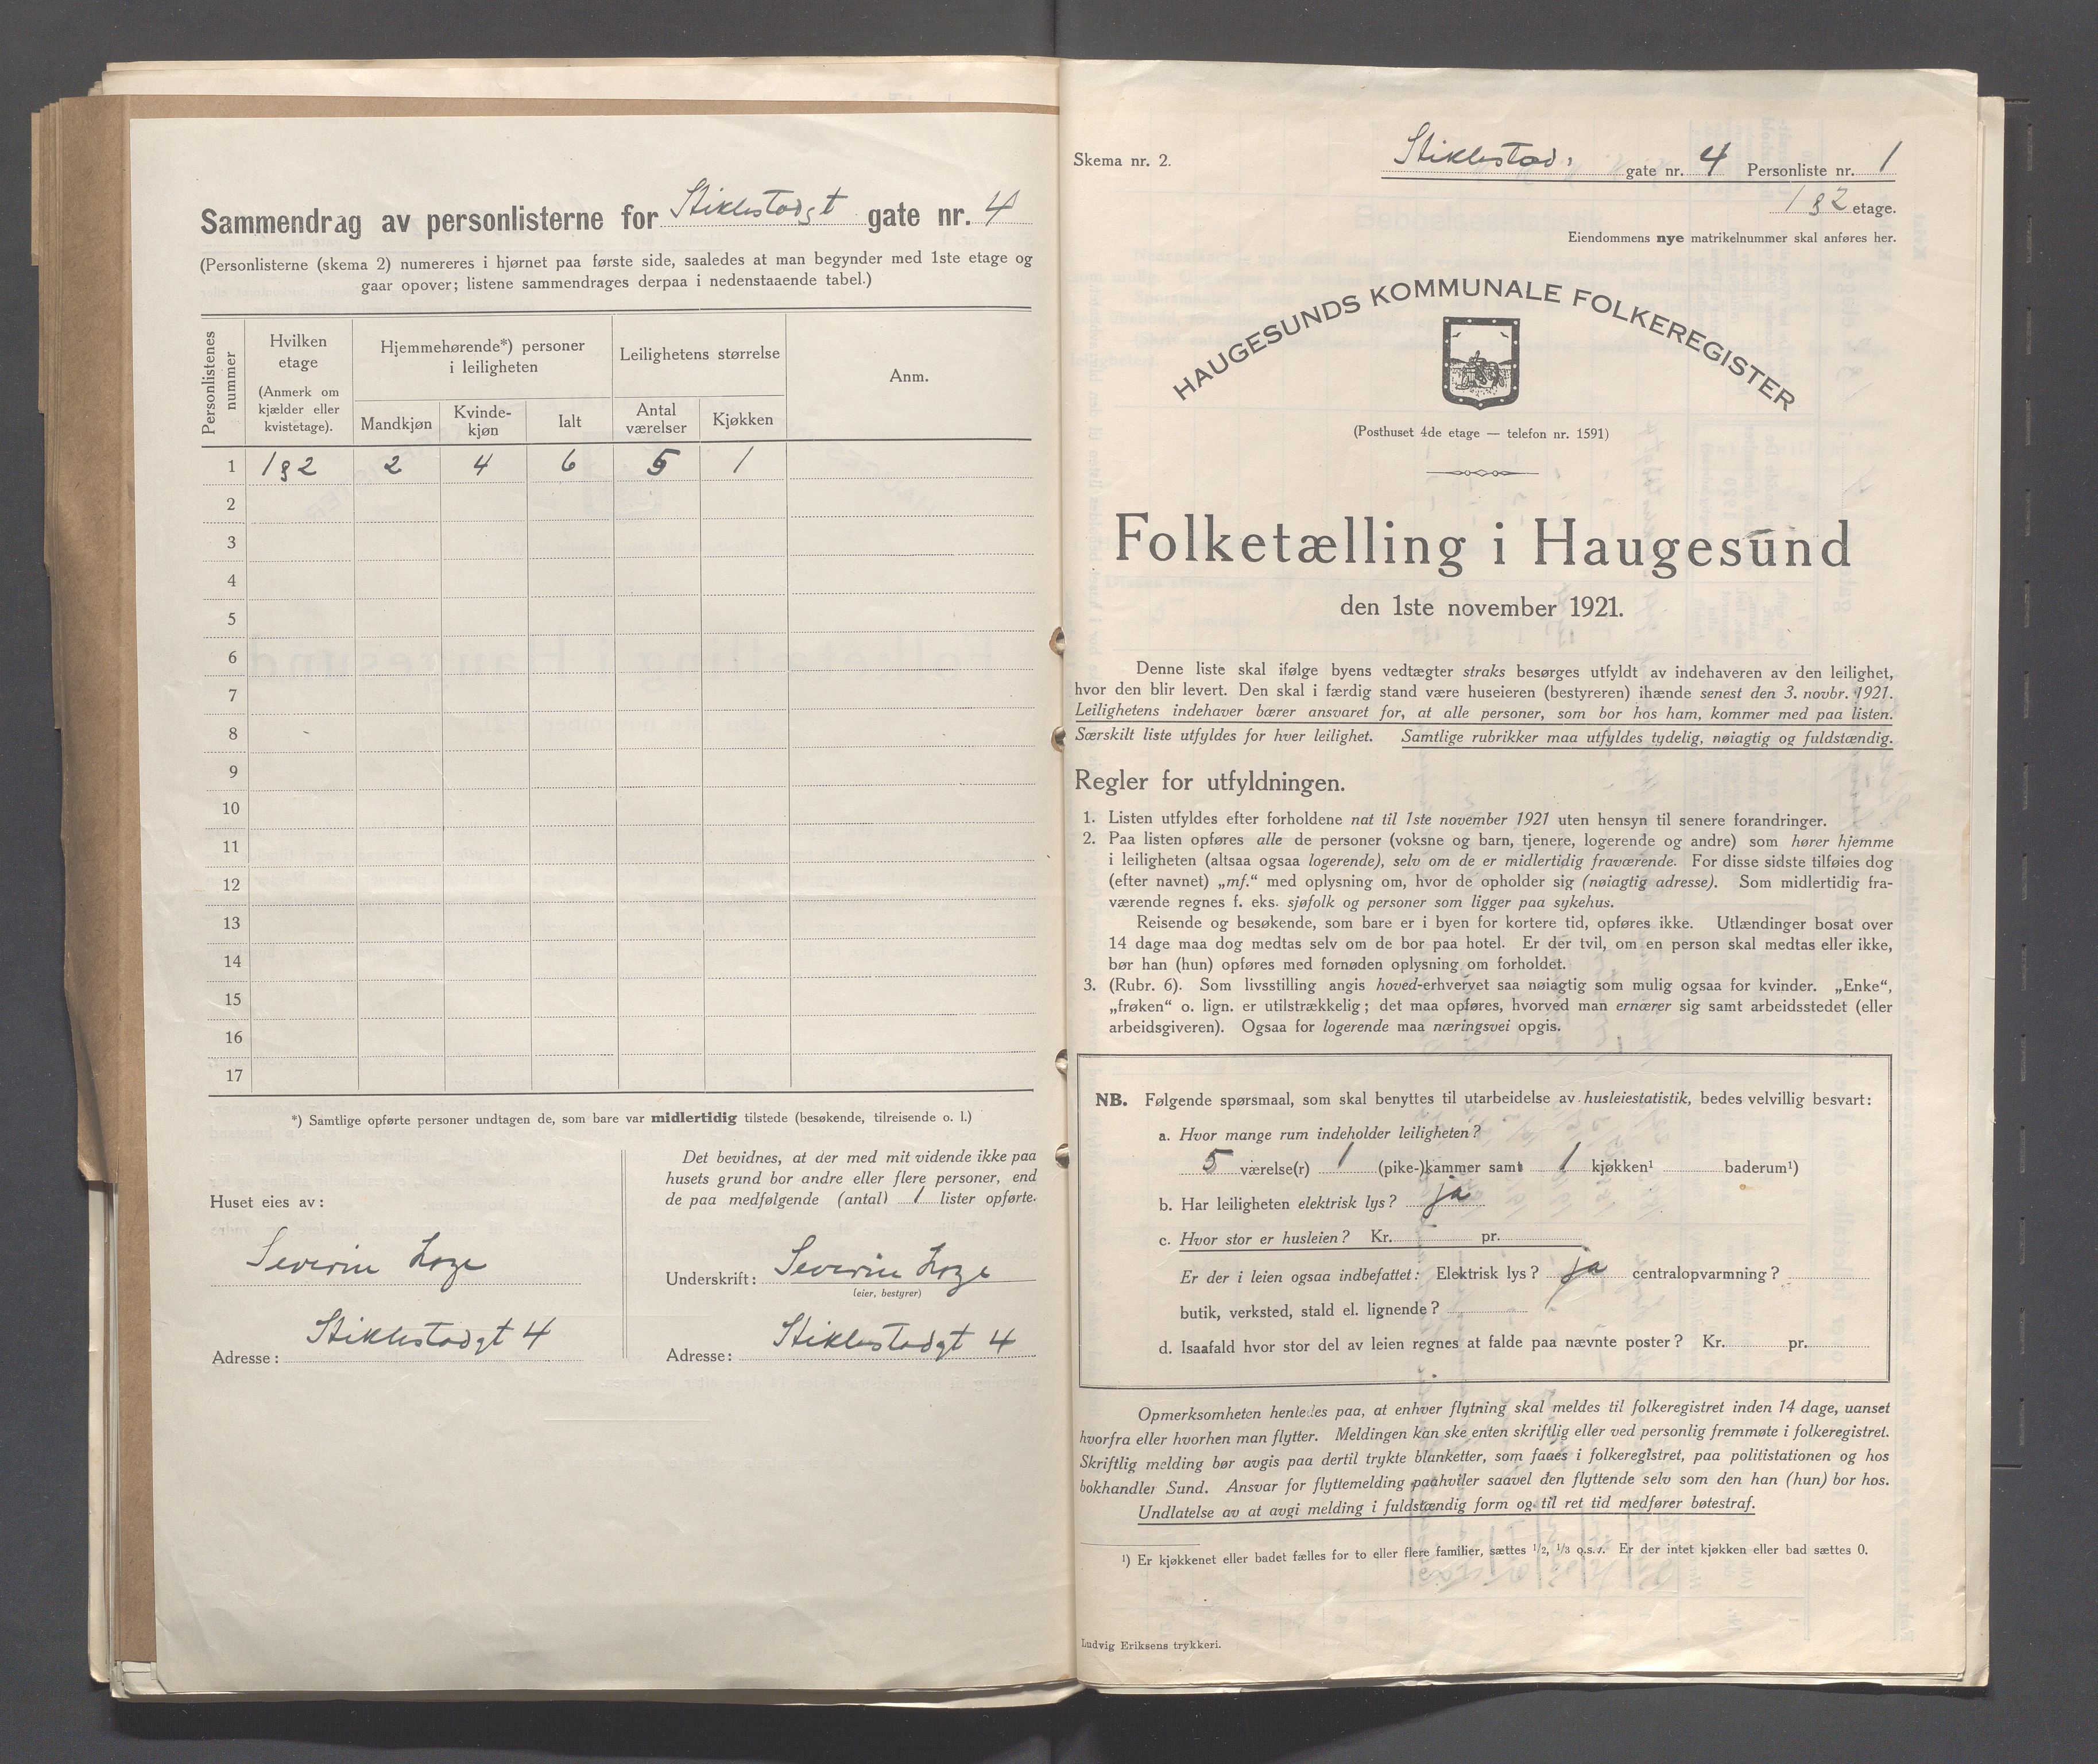 Sammendrag av personlisterne for Stiklestadgt gate nr. 4
(Personlisterne (skema 2) numereres i hjørnet paa første side, saaledes at man begynder med 1ste etage og
gaar opover; listene sammendrages derpaa i nedenstaaende tabel.)
Personlistenes nummer
Hvilken etage
(Anmerk om kjælder eller kvistetage).
Hjemmehørende*) personer i leiligheten
Mandkjøn
Kvinde-kjøn
Ialt
Leilighetens størrelse
Antal værelser
Kjøkken
Anm.
1 1 & 2 2 4 6 5 1
2
3
4
5
6
7
8
9
10
11
12
13
14
15
16
17
*) Samtlige opførte personer undtagen de, som bare var midlertidig tilstede (besøkende, tilreisende o. l.)
Huset eies av:
Severin
Adresse: Stiklestadgt 4
Det bevidnes, at der med mit vidende ikke paa
husets grund bor andre eller flere personer, end
de paa medfølgende (antal) 1 lister opførte.
Underskrift: Severin
(eier, bestyrer)
Adresse: Stiklestadgt 4
Skema nr. 2.
Stiklestad: gate nr. 4 Personliste nr. 1
1 & 2 etage.
Eiendommens nye matrikelnummer skal anføres her.
HAUGESUNDS KOMMUNALE FOLKEREGISTER
(Posthuset 4de etage — telefon nr. 1591)
Folketælling i Haugesund
den 1ste november 1921.
Denne liste skal ifølge byens vedtægter straks besørges utfyldt av indehaveren av den leilighet,
hvor den blir levert. Den skal i færdig stand være huseieren (bestyreren) ihænde senest den 3. novbr. 1921.
Leilighetens indehaver bærer ansvaret for, at alle personer, som bor hos ham, kommer med paa listen.
Særskilt liste utfyldes for hver leilighet. Samtlige rubrikker maa utfyldes tydelig, nøiagtig og fuldstændig.
Regler for utfyldningen.
1. Listen utfyldes efter forholdene nat til 1ste november 1921 uten hensyn til senere forandringer.
2. Paa listen opføres alle de personer (voksne og barn, tjenere, logerende og andre) som hører hjemme
i leiligheten (altsaa ogsaa logerende), selv om de er midlertidig fraværende. For disse sidste tilføies dog
(efter navnet) „mf.“ med oplysning om, hvor de opholder sig (nøiagtig adresse). Som midlertidig fra-
værende regnes f. eks. sjøfolk og personer som ligger paa sykehus.
Reisende og besøkende, som bare er i byen for kortere tid, opføres ikke. Utlændinger bosat over
14 dage maa dog medtas selv om de bor paa hotel. Er der tvil, om en person skal medtas eller ikke,
bør han (hun) opføres med fornøden oplysning om forholdet.
3. (Rubr. 6). Som livsstilling angis hoved-erhvervet saa nøiagtig som mulig ogsaa for kvinder. „Enke“,
„frøken“ o. lign. er utilstrækkelig; det maa opføres, hvorved man ernærer sig samt arbeidsstedet (eller
arbeidsgiveren). Ogsaa for logerende maa næringsvei opgis.
NB. Følgende spørsmaal, som skal benyttes til utarbeidelse av husleiestatistik, bedes velvillig besvart:
a. Hvor mange rum indeholder leiligheten?
5 værelse(r) 1 (pike-)kammer samt 1 kjøkken¹ baderum¹)
b. Har leiligheten elektrisk lys? ja
c. Hvor stor er husleien? Kr. pr.
Er der i leien ogsaa indbefattet: Elektrisk lys? ja centralopvarmning?
butik, verksted, stald el. lignende?
d. Isaafald hvor stor del av leien regnes at falde paa nævnte poster? Kr. pr.
Opmerksomheten henledes paa, at enhver flytning skal meldes til folkeregistret inden 14 dage, uanset
hvorfra eller hvorhen man flytter. Meldingen kan ske enten skriftlig eller ved personlig fremmøte i folkeregistret.
Skriftlig melding bør avgis paa dertil trykte blanketter, som faaes i folkeregistret, paa politistationen og hos
bokhandler Sund. Ansvar for flyttemelding paahviler saavel den flyttende selv som den han (hun) bor hos.
Undlatelse av at avgi melding i fuldstændig form og til ret tid medfører bøtestraf.
¹) Er kjøkkenet eller badet fælles for to eller flere familier, sættes 1/2, 1/3 o.s.v. Er der intet kjøkken eller bad sættes 0.
Ludvig Eriksens trykkeri.